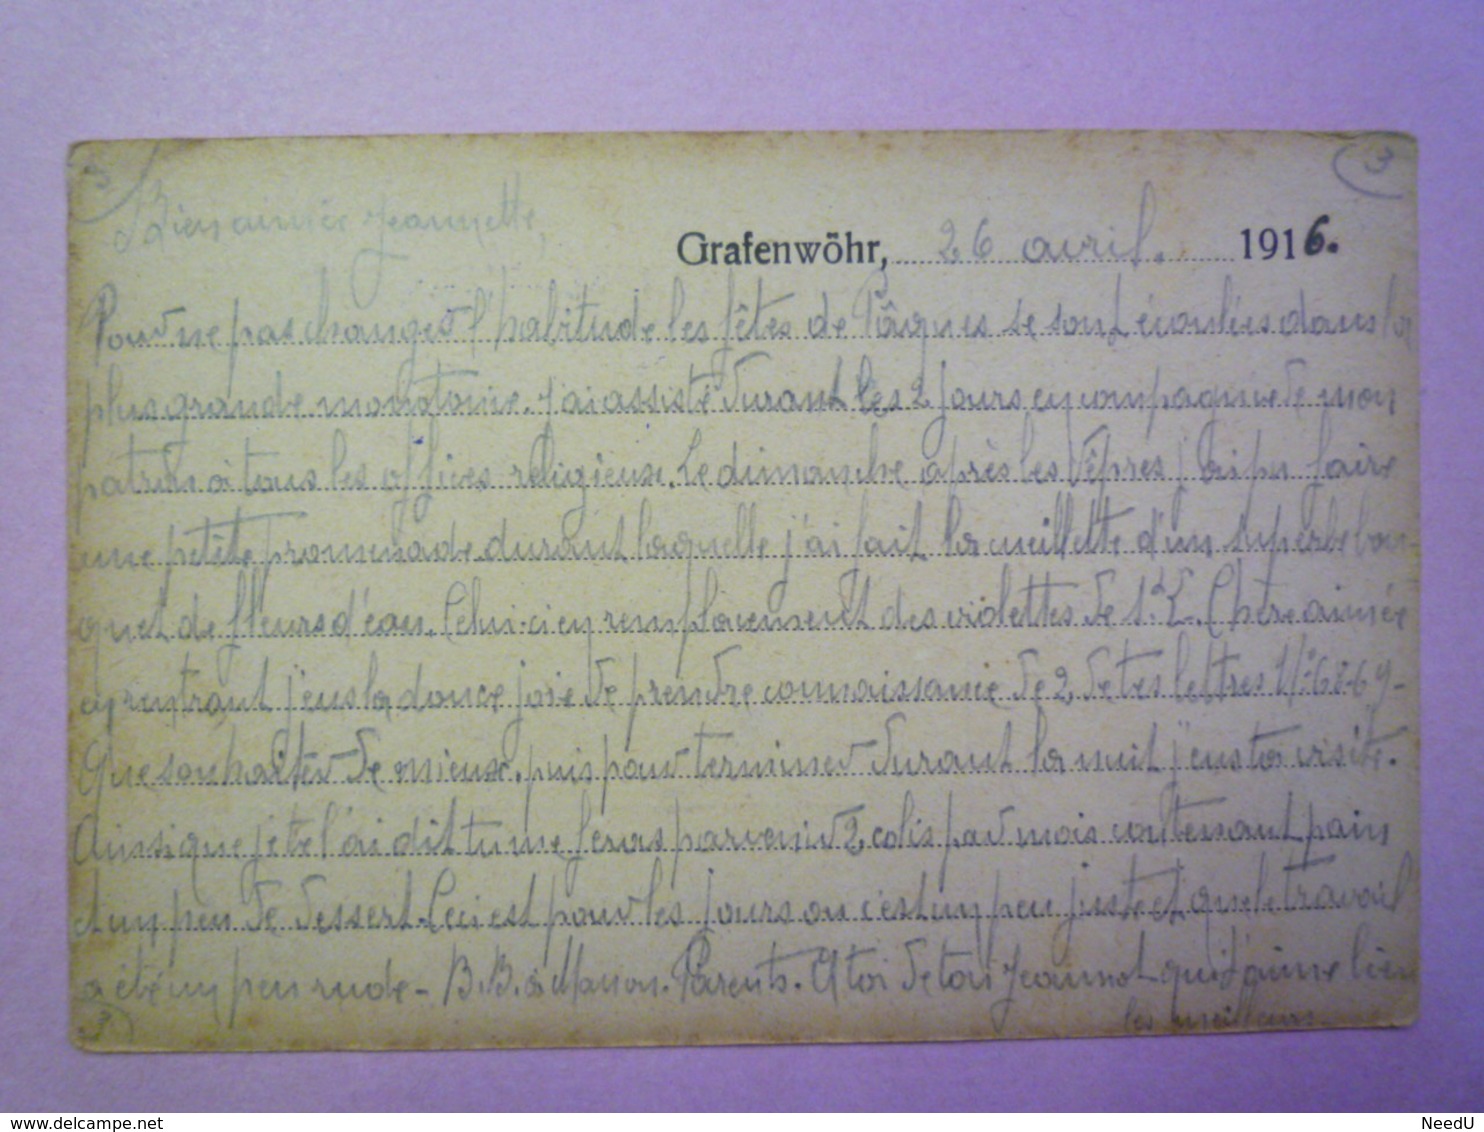 3
3
Bien aimée Jeannette,
Grafenwöhr, 26 avril. 1916.
Pour ne pas changer l'habitude les fêtes de Pâques se sont écoulées dans la
plus grande monotonie. J'ai assisté durant les 2 jours en compagnie de mon
patron à tous les offices religieux. Le dimanche après les Vêpres j'ai pu faire
une petite promenade durant laquelle j'ai fait la cueillette d'un superbe bou-
quet de fleurs d'eau. Celui-ci en remplacement des violettes de Chère aimée
en rentrant j'eus la douce joie de prendre connaissance de 2 de tes lettres Nº 68-69-
Que souhaiter de mieux, puis pour terminer durant la nuit j'eus ta visite.
Ainsi que je te l'ai dit tu me feras parvenir 2 colis par mois contenant pain
et un peu de dessert. Ceci est pour les jours ou c'est un peu juste et que le travail
a été un peu rude - B.B. à Manon. Parents. A toi de ton Jeannot qui t'aime bien
les meilleurs
3
NeedU